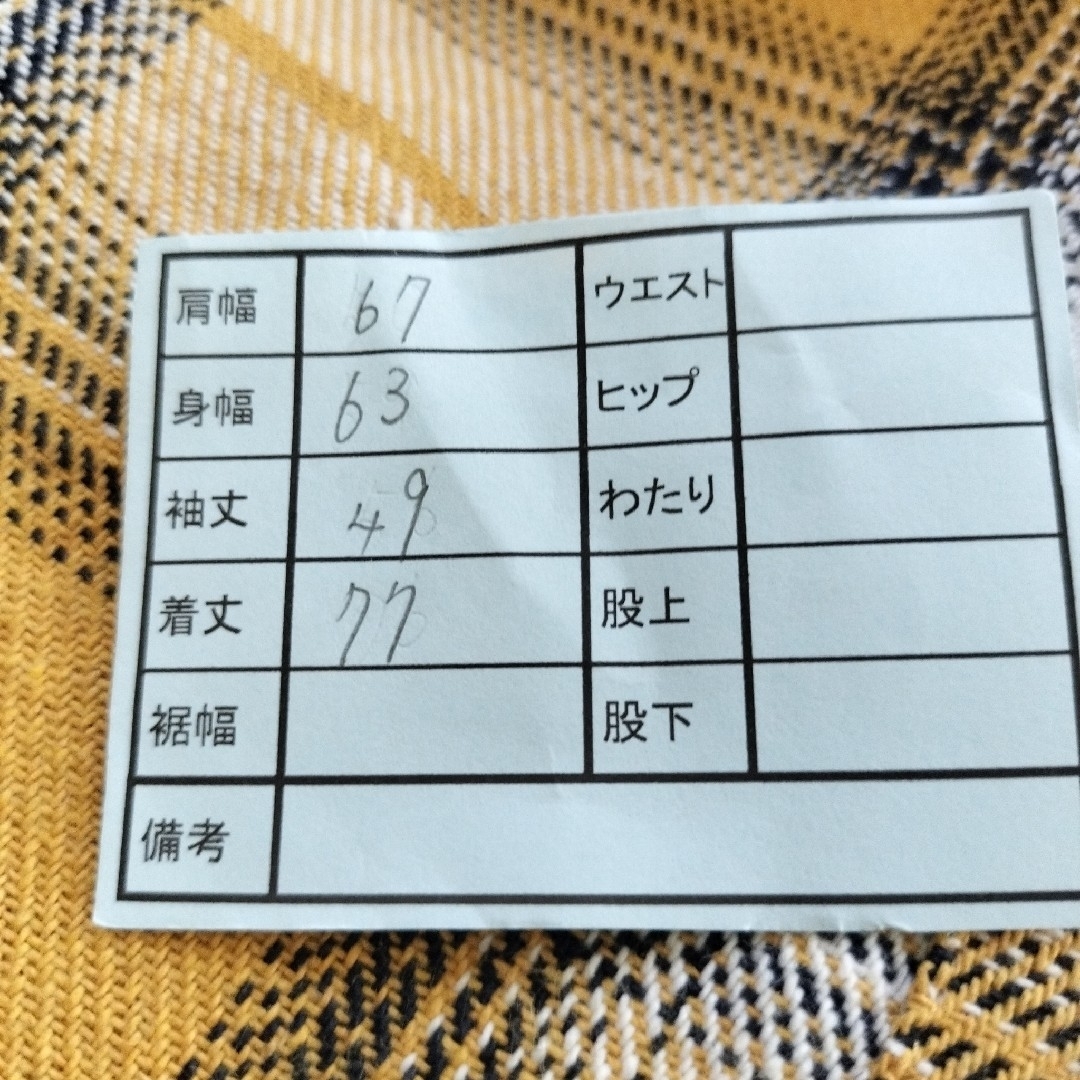 肩幅 67 ウエスト
身幅 63 ヒップ
袖丈 49 わたり
着丈 77 股上
裾幅 股下
備考